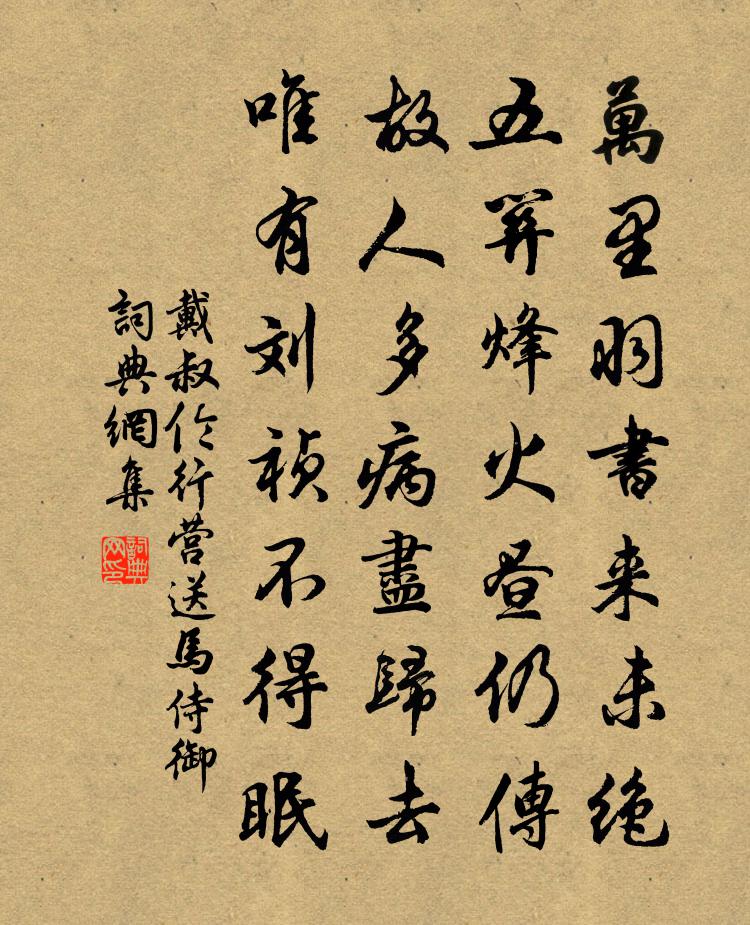 萬里羽書来未绝
五関烽火昼仍傳
故人多病盡歸去
唯有刘祯不得眠
戴叔伦行营送馬侍御
詞典網集
詞典网印